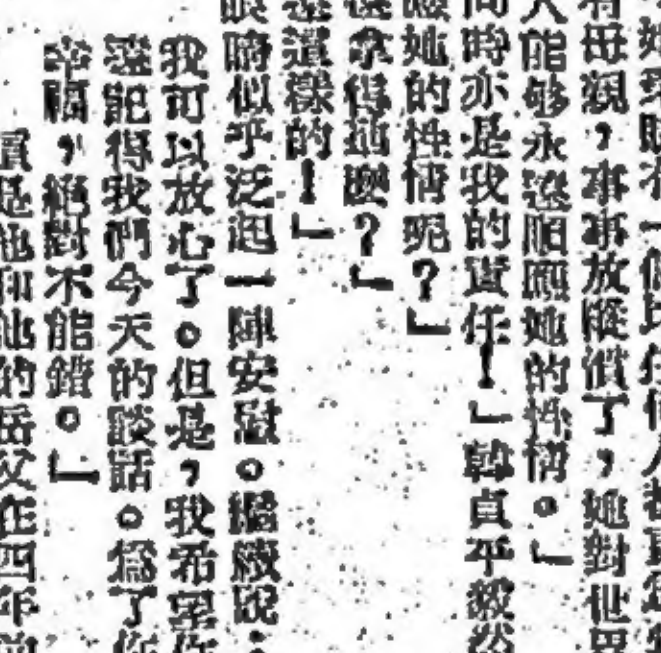 有母親，事事放縱慣了，她對世界
人能够永遠順照她的性情。」
同時亦是我的責任！」韓貞平毅然
她的性情呢？」
拿得過麼？」
這樣的！」
眼睛似乎泛起一陣安慰。繼續說：
我可以放心了。但是，我希望你
記得我們今天的談話。爲了你
幸福，絕對不能錯。」
是他和他的岳父在四年前